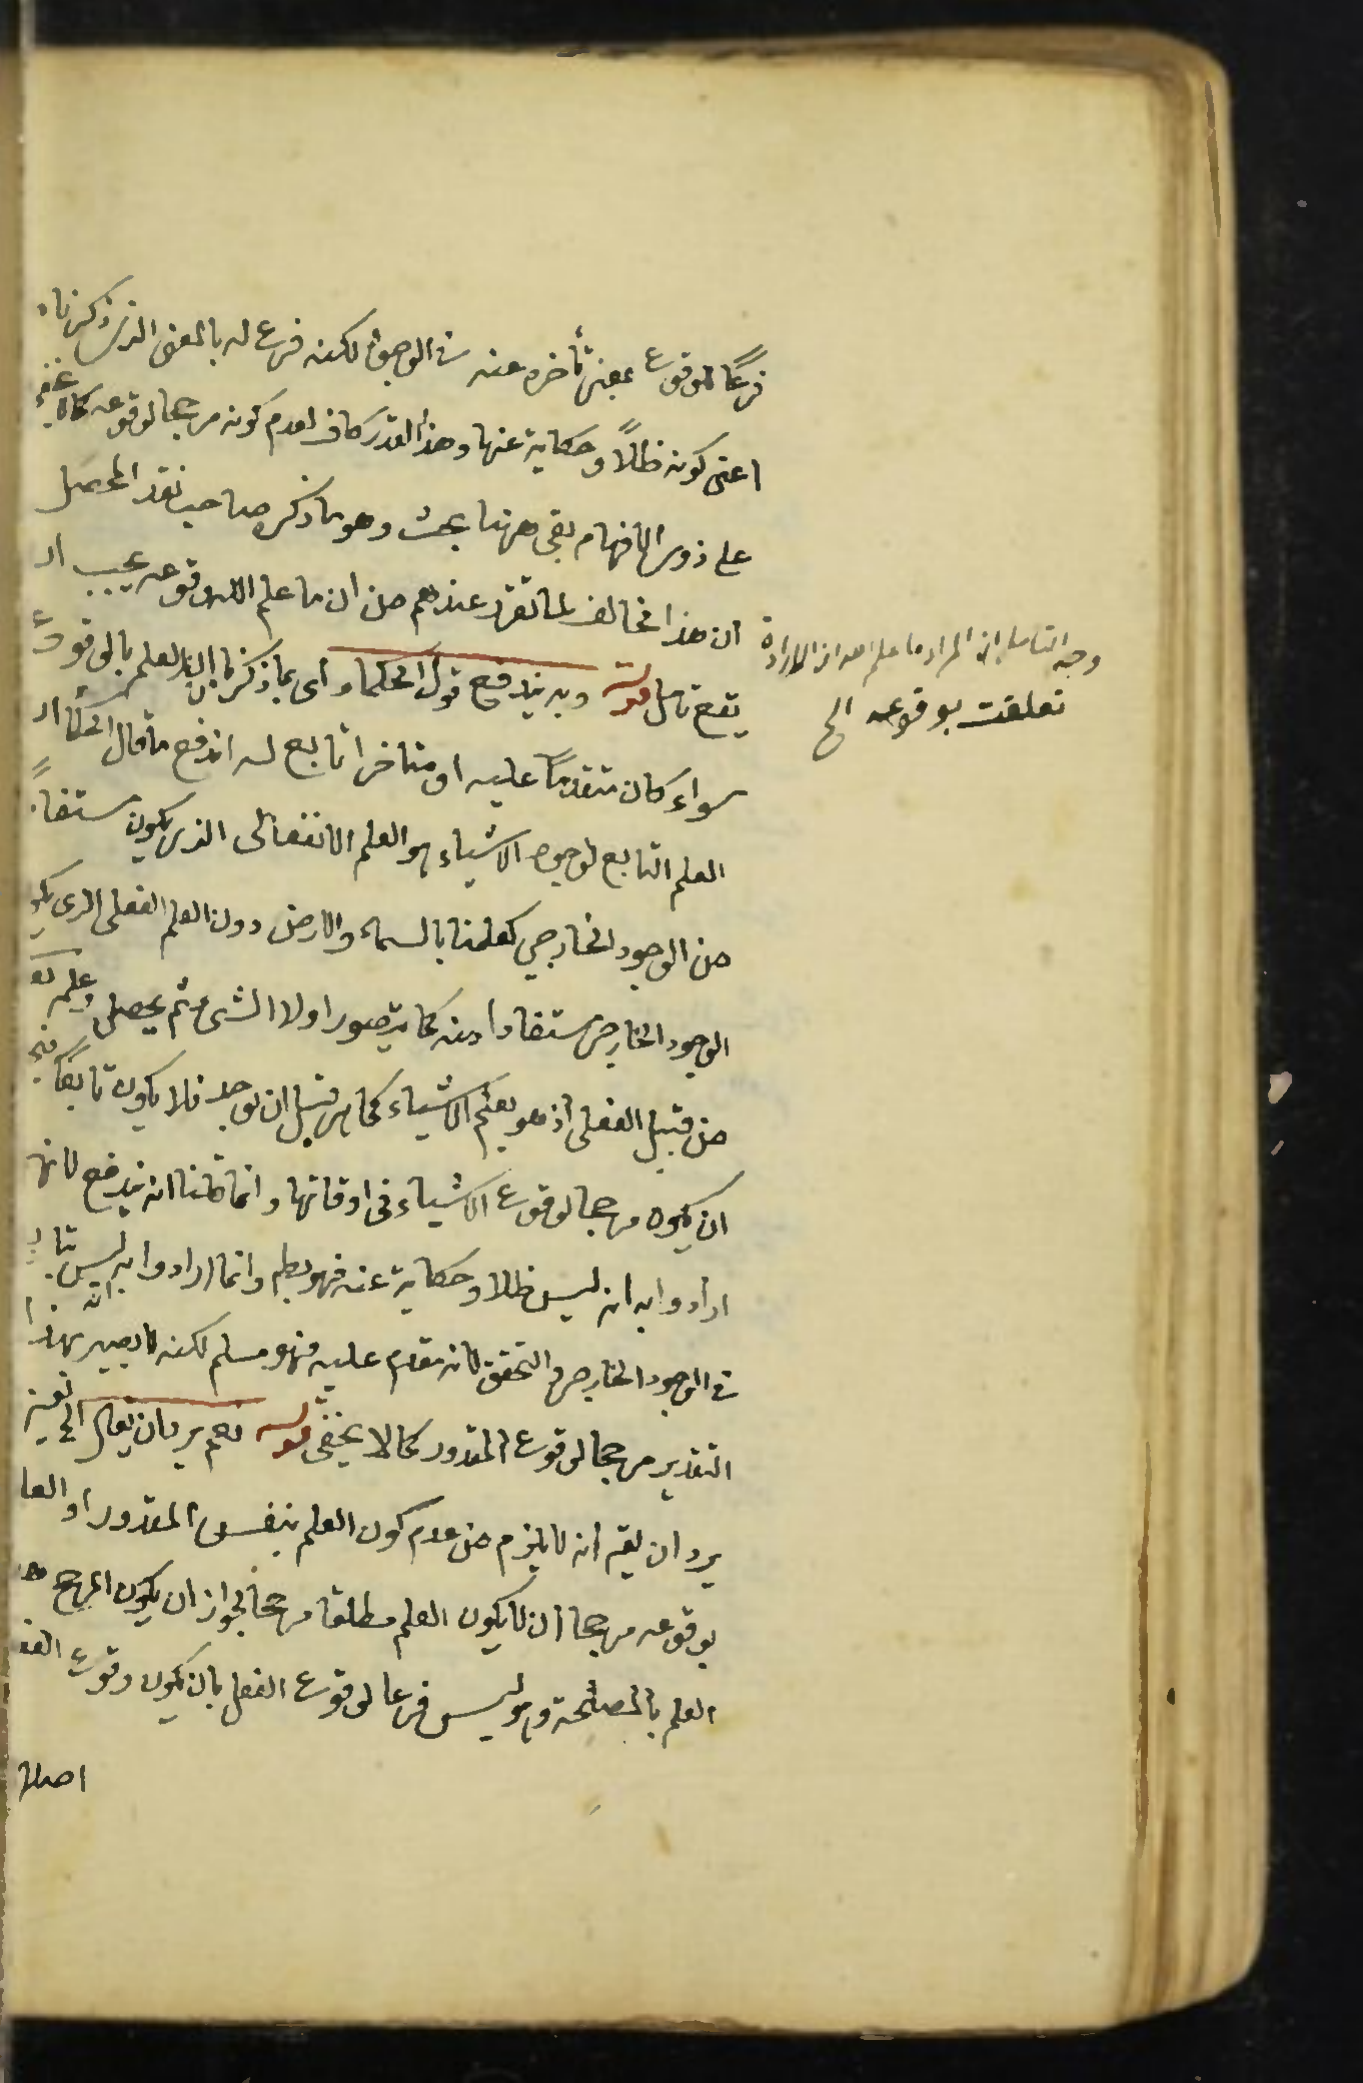 فرعًا للوقوع بمعنى تأخره عنه في الوجود لكنه فرع له بالمعنى الذي ذكرناه
اعنى كونه ظلاً وحكاية عنها وهذا القدر كاف لعدم كونه مرجحا لوقوعه كما لا يخفى
على ذوى الافهام بقى ههنا بحث وهو ما ذكره صاحب نقد المحصل
ان هذا مخالف لما تقرر عندهم من ان ما علم الله وقوعه يجب ان
يقع تامل قوله وبه يندفع قول الحكما اى بما ذكرنا ان العلم بالوقوع
سواء كان متقدمًا عليه او متاخرا تابع له اندفع ما قال الحكماء ان
العلم التابع لوجود الاشياء هو العلم الانفعالى الذى يكون مستفادًا
من الوجود الخارجي كعلمنا بالسماء والارض دون العلم الفعلى الذى يكو
الوجود الخارجى مستفادا منه كما يتصور اولا الشىء ثم يحصل وعلمه تع
من قبيل الفعلى اذ هو يعلم الاشياء كما هى قبل ان توجد فلا يكون تابعًا فيجو
ان يكون مرجحا لوقوع الاشياء فى اوقاتها وانما قلنا انه يندفع لانها
ارادوا به انه ليس ظلا وحكاية عنه فهو بطم وانما ارادوا به انه ليس تابع
في الوجود الخارجى والتحقق لانه مقدم عليه فهو مسلم لكنه لا يصير بهذا
التقدير مرجحا لوقوع المقدور كما لا يخفى قوله نعم يرد ان يقال الخ يعنى
يرد ان يقم انه لا يلزم من عدم كون العلم بنفس المقدور او العا
بوقوعه مرجحا ان لا يكون العلم مطلقا مرجحا لجواز ان يكون المرجح هو
العلم بالمصلحة وهو ليس فرعا لوقوع الفعل بان يكون وقوع الفعـ
اصلا
وجه التامل ان المراد ما علم الله ان الارادة
تعلقت بوقوعه الخ